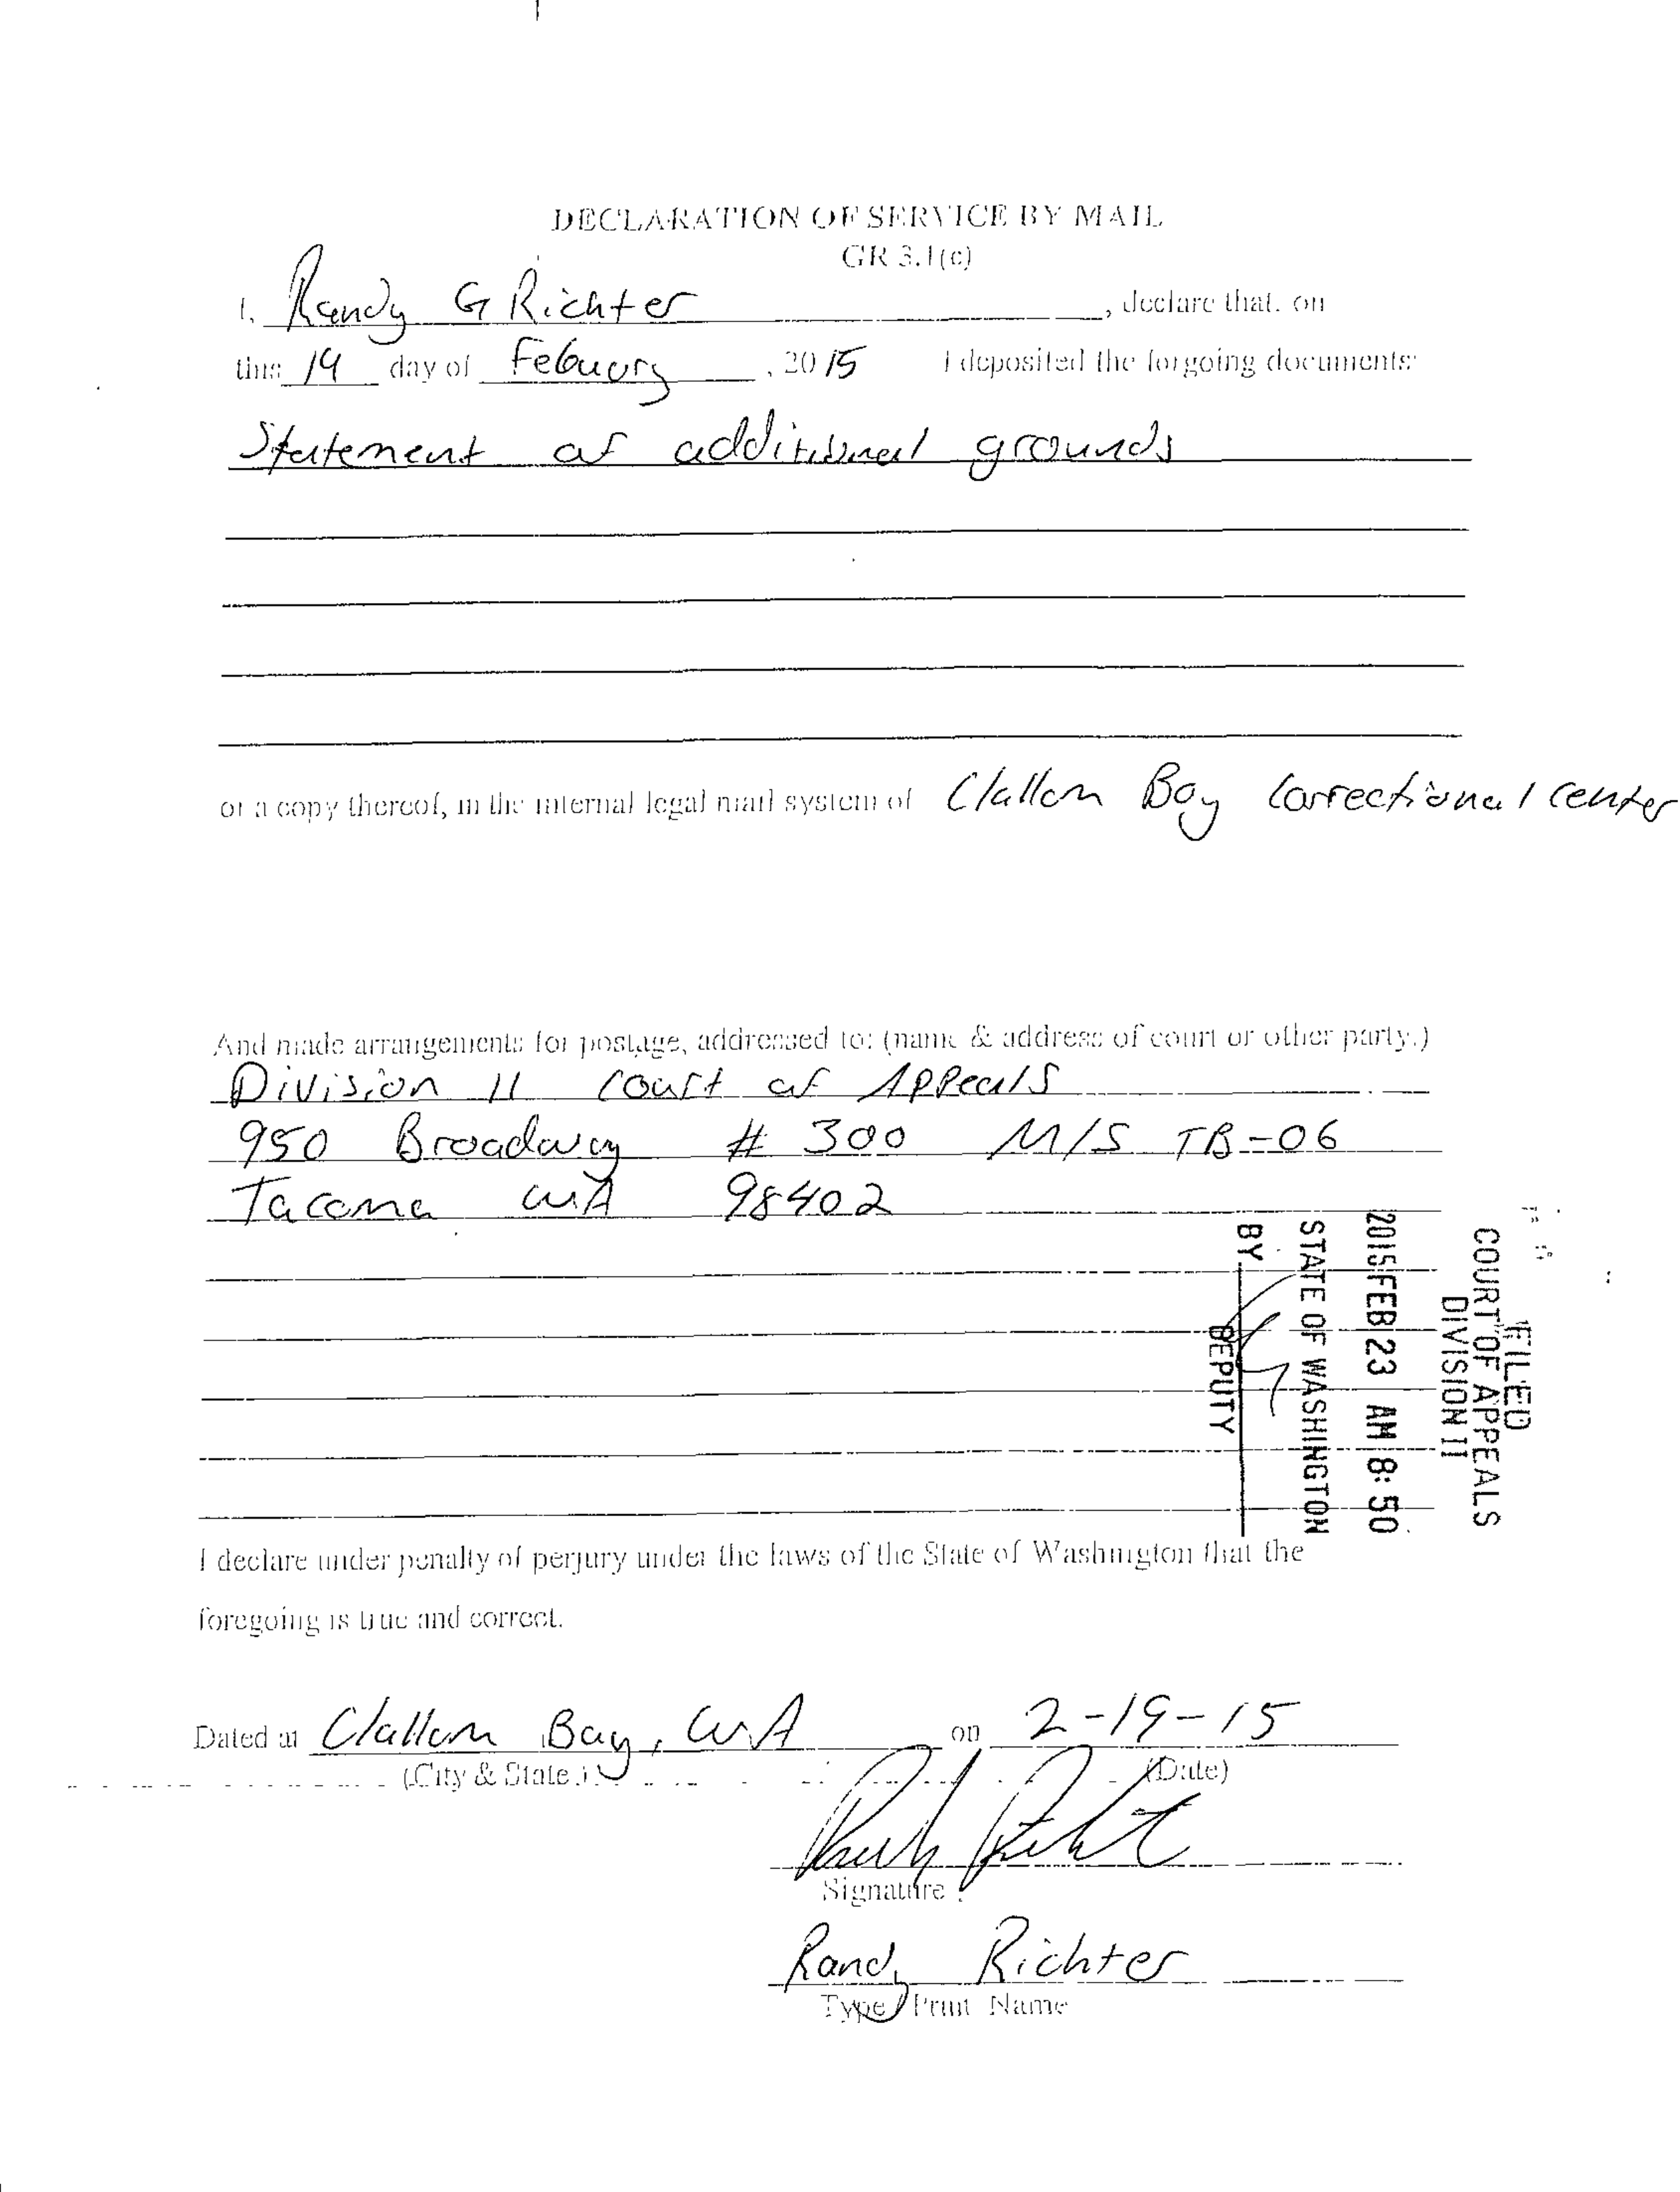 DECLARATION OF SERVICE BY MAIL
GR 3.1(c)
I, Randy G Richter, declare that, on
this 19 day of Febuary, 2015 I deposited the forgoing documents:
Statement of additional grounds
or a copy thereof, in the internal legal mail system of Clallam Bay Correctional center
And made arrangements for postage, addressed to: (name & address of court or other party.)
Division II Court of Appeals
950 Broadway # 300 M/S TB-06
Tacoma WA 98402
FILED
COURT OF APPEALS
DIVISION II
2015 FEB 23 AM 8:50
STATE OF WASHINGTON
BY
DEPUTY
I declare under penalty of perjury under the laws of the State of Washington that the
foregoing is true and correct.
Dated at Clallam Bay, WA on 2-19-15
(City & State) (Date)
Signature
Randy Richter
Type / Print Name